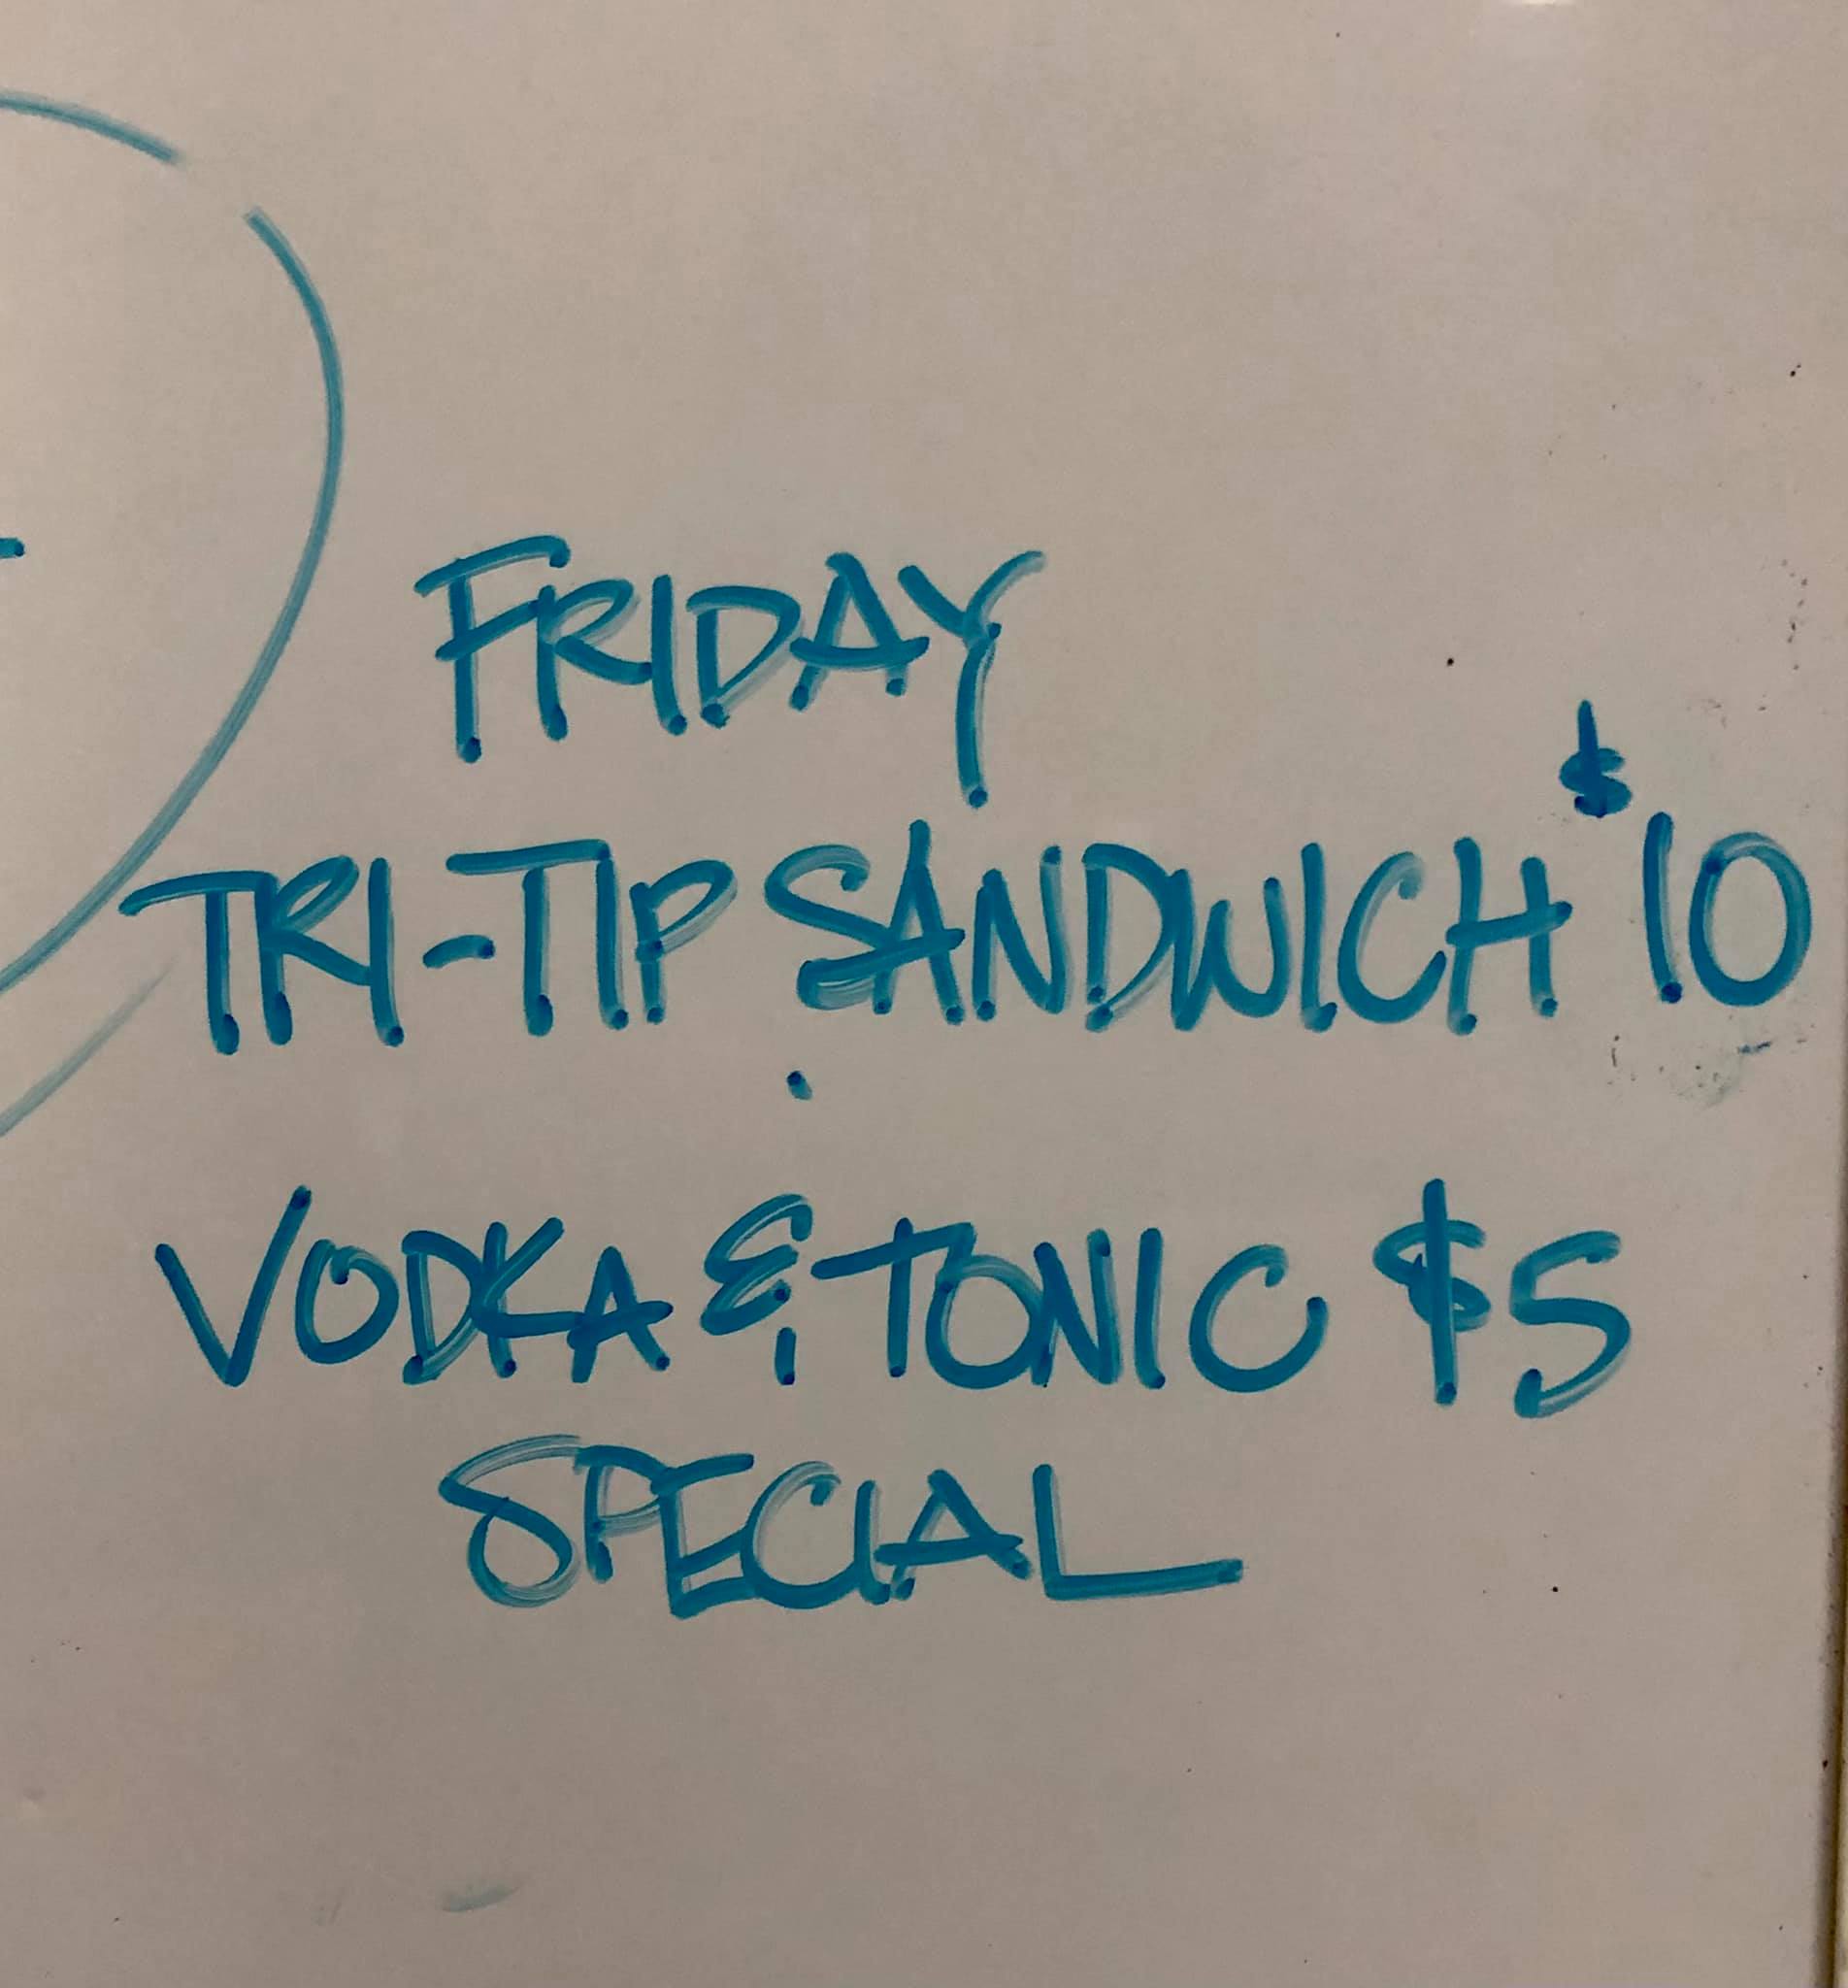 FRIDAY
TRI-TIP SANDWICH $10
VODKA & TONIC $5
SPECIAL